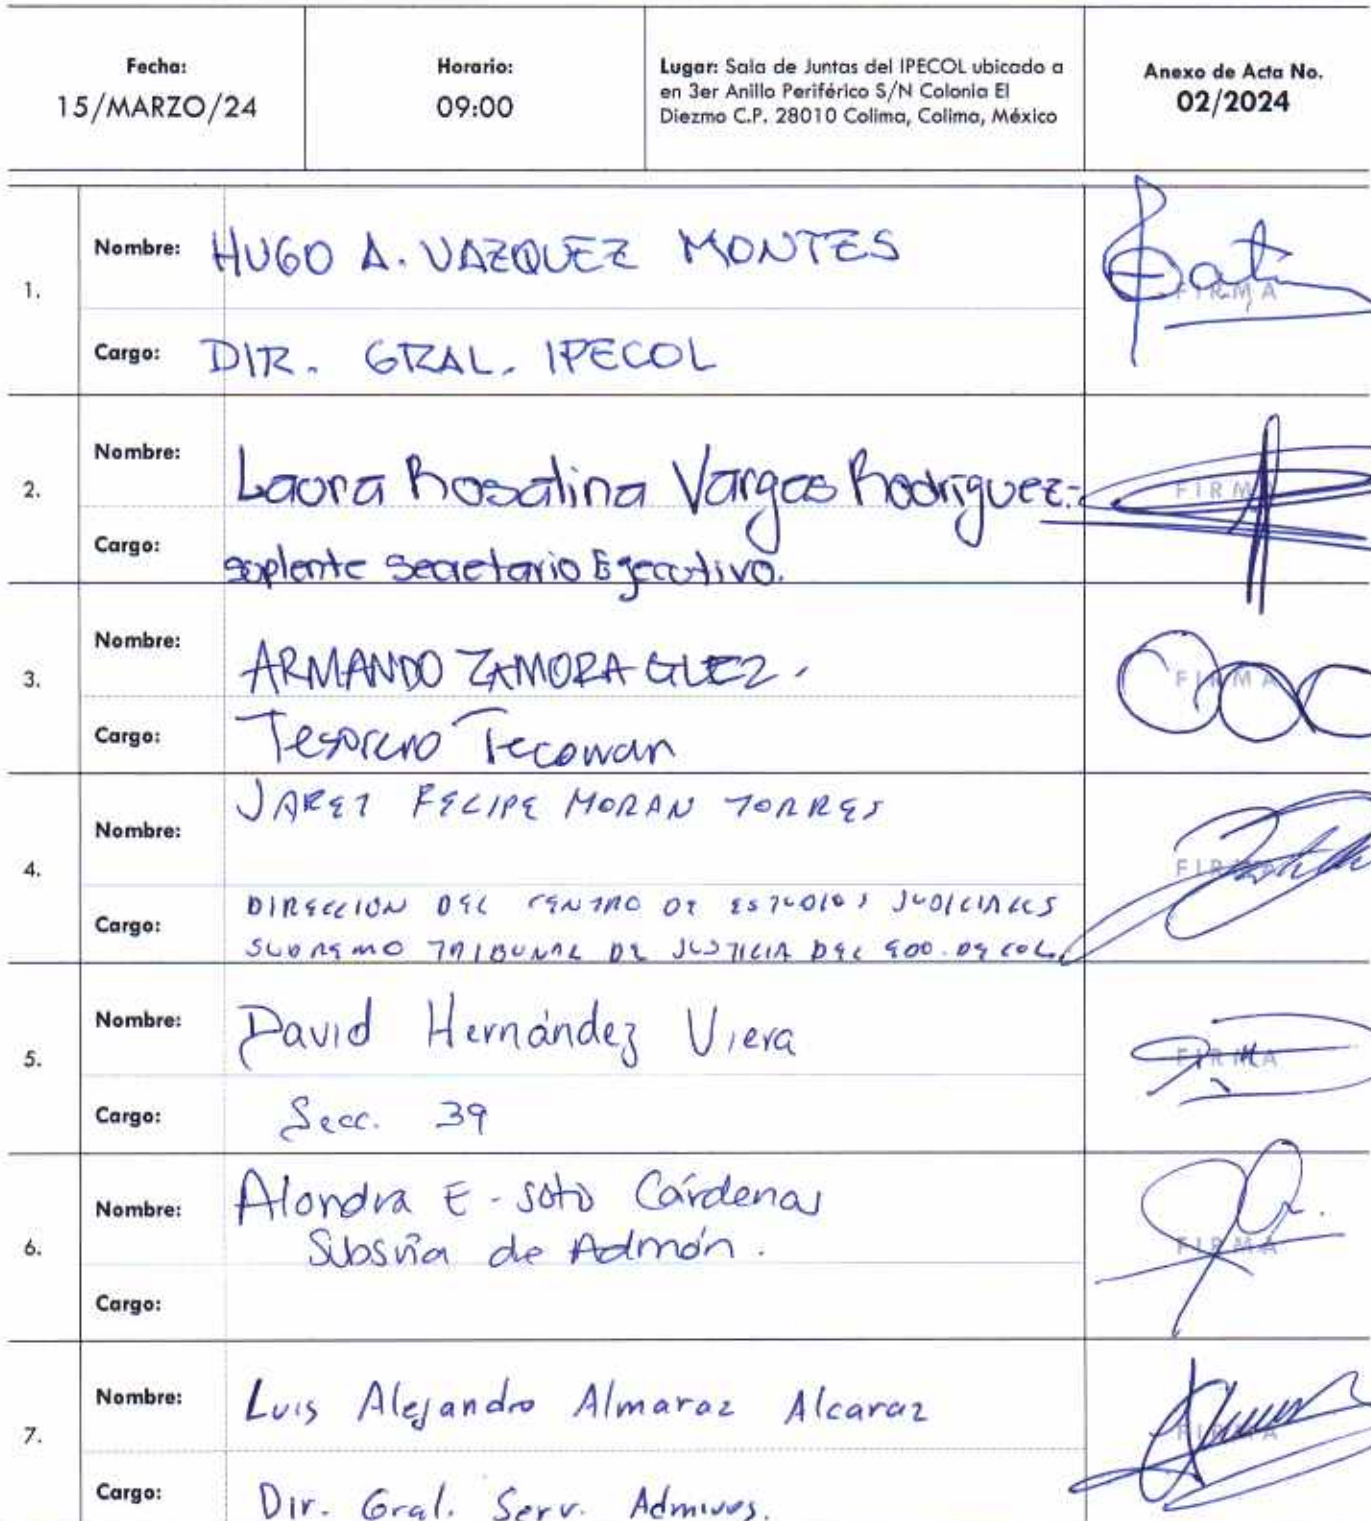 Fecha:
15/MARZO/24
Horario:
09:00
Lugar: Sala de Juntas del IPECOL ubicado a
en 3er Anillo Periférico S/N Colonia El
Diezmo C.P. 28010 Colima, Colima, México
Anexo de Acta No.
02/2024
1.
Nombre: HUGO A. VAZQUEZ MONTES
FIRMA
Cargo: DIR. GRAL. IPECOL
2.
Nombre: Laura Rosalina Vargas Rodríguez.
FIRMA
Cargo: suplente secretario Ejecutivo.
3.
Nombre: ARMANDO ZAMORA GLEZ.
FIRMA
Cargo: Tesorero Tecoman
4.
Nombre: JARET FELIPE MORAN TORRES
FIRMA
Cargo: DIRECCION DEL CENTRO DE ESTUDIOS JUDICIALES
SUPREMO TRIBUNAL DE JUSTICIA DEL EDO. DE COL.
5.
Nombre: David Hernández Viera
FIRMA
Cargo: Secc. 39
6.
Nombre: Alondra E. Soto Cárdenas
Subsría de Admón.
FIRMA
Cargo:
7.
Nombre: Luis Alejandro Almaraz Alcaraz
FIRMA
Cargo: Dir. Gral. Serv. Admivos.